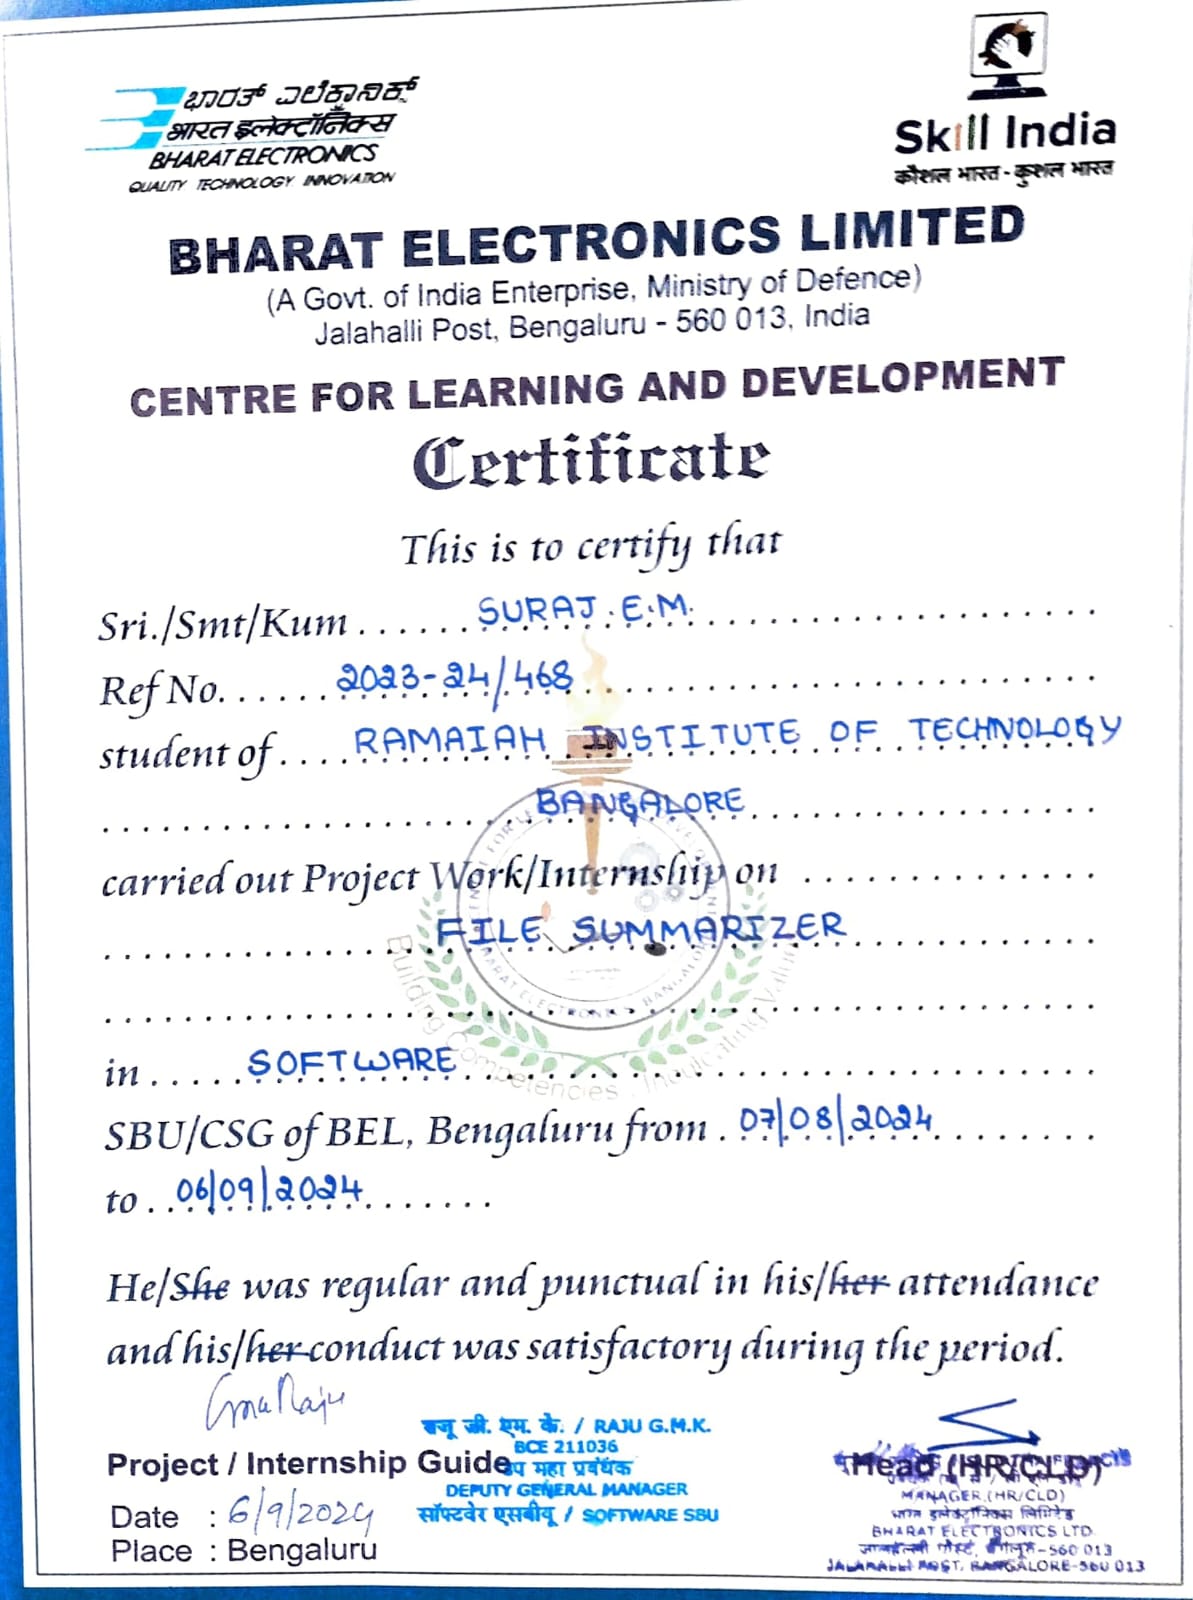 ಭಾರತ್ ಎಲೆಕ್ಟ್ರಾನಿಕ್ಸ್
भारत इलेक्ट्रॉनिक्स
BHARAT ELECTRONICS
QUALITY TECHNOLOGY INNOVATION
Skill India
कौशल भारत - कुशल भारत
BHARAT ELECTRONICS LIMITED
(A Govt. of India Enterprise, Ministry of Defence)
Jalahalli Post, Bengaluru - 560 013, India
CENTRE FOR LEARNING AND DEVELOPMENT
Certificate
This is to certify that
Sri./Smt/Kum ...... SURAJ.E.M.
Ref No. ...... 2023-24/468
student of .... RAMAIAH INSTITUTE OF TECHNOLOGY
BANGALORE
carried out Project Work/Internship on
FILE SUMMARIZER
Building Competencies
in ..... SOFTWARE
SBU/CSG of BEL, Bengaluru from . 07/08/2024
to .. 06/09/2024
He/She was regular and punctual in his/her attendance
and his/her conduct was satisfactory during the period.
Project / Internship Guide
राजू जी. एम. के. / RAJU G.M.K.
BCE 211036
उप महा प्रबंधक
DEPUTY GENERAL MANAGER
सॉफ्टवेर एसबीयू / SOFTWARE SBU
Date : 6/9/2024
Place : Bengaluru
Head (HR/CLD)
MANAGER (HR/CLD)
भारत इलेक्ट्रॉनिक्स लिमिटेड
BHARAT ELECTRONICS LTD.
JALAHALLI POST, BANGALORE-560 013